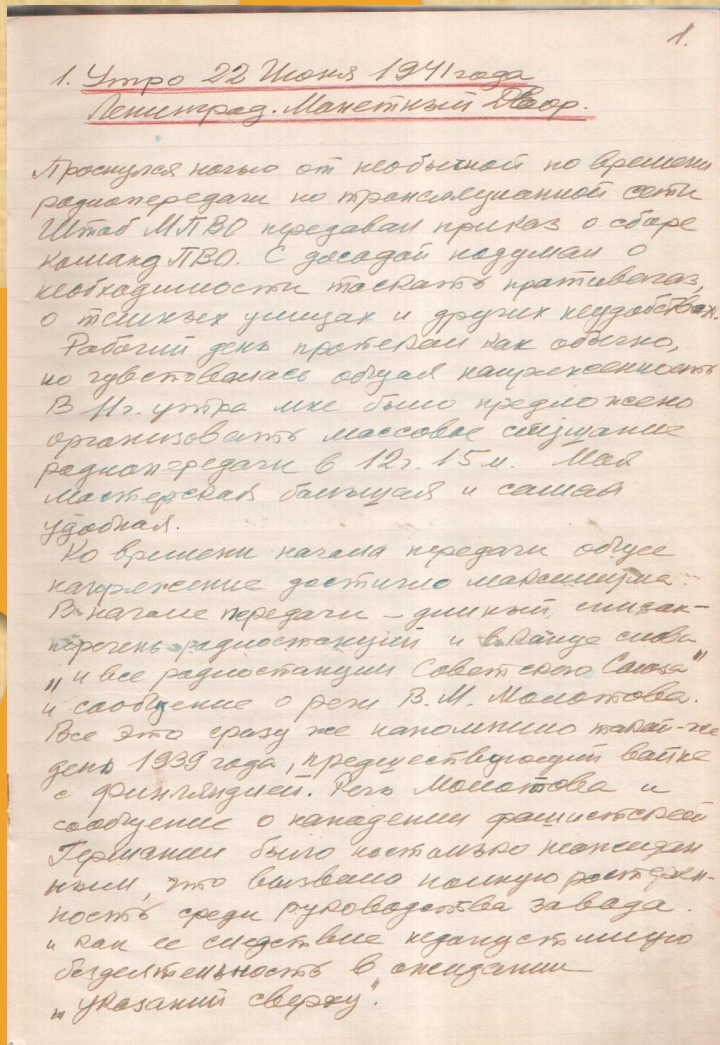 1.
1. Утро 22 Июня 1941 года
Ленинград. Монетный Двор.
Проснулся ночью от необычной по времени
радиопередачи по трансляционной сети
Штаб МПВО передавал приказ о сборе
команд ПВО. С досадой подумал о
необходимости таскать противогаз,
о темных улицах и других неудобствах.
Рабочий день протекал как обычно,
но чувствовалась общая напряженность
В 11 г. утра мне было предложено
организовать массовое слушание
радиопередачи в 12 г. 15 м. Моя
мастерская большая и самая
удобная.
Ко времени начала передачи общее
напряжение достигло максимума.
В начале передачи – длинный список-
перечень радиостанций и в конце слова
„и все радиостанции Советского Союза"
и сообщение о речи В. М. Молотова.
Все это сразу же напомнило такой-же
день 1939 года, предшествующий войне
с Финляндией. Речь Молотова и
сообщение о нападении фашистской
Германии было настолько неожидан
ным, что вызвало полную растерян-
ность среди руководства завода.
и как ее следствие недопустимую
бездеятельность в ожидании
„указаний сверху".